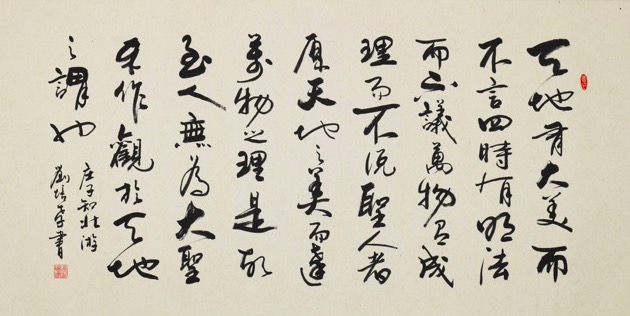 天地有大美而
不言四時有明法
而不議萬物有成
理而不説聖人者
原天地之美而達
萬物之理是故
至人無為大聖
不作觀於天地
之謂也
庚子知北游
劉培書